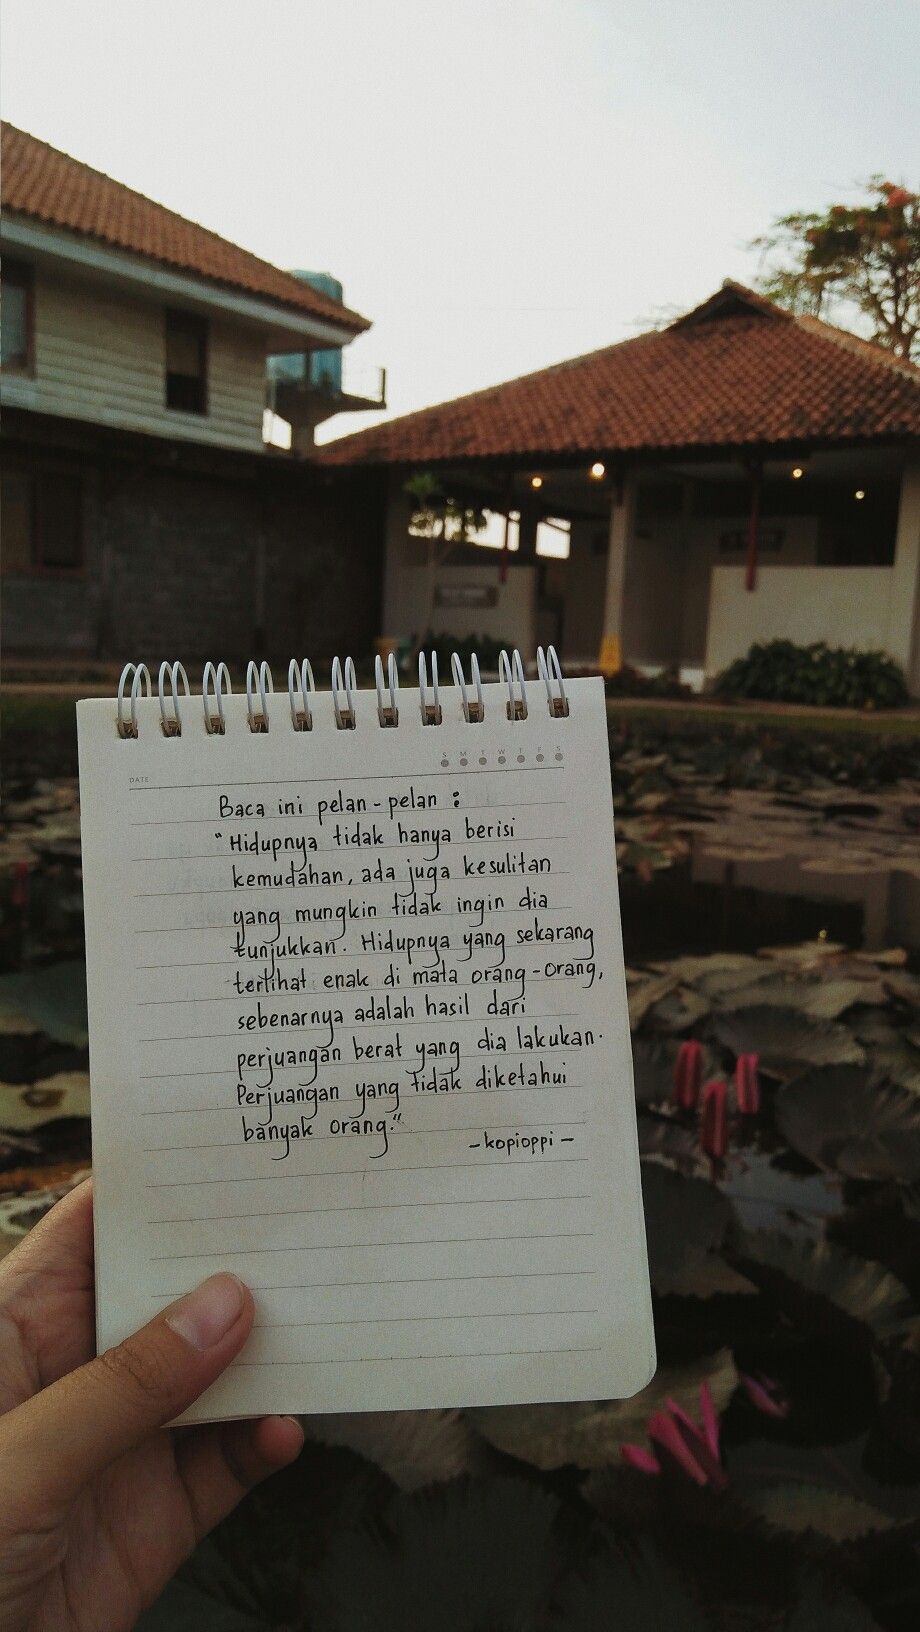 DATE
S M T W T F S
Baca ini pelan-pelan :
"Hidupnya tidak hanya berisi
kemudahan, ada juga kesulitan
yang mungkin tidak ingin dia
tunjukkan. Hidupnya yang sekarang
terlihat enak di mata orang-orang,
sebenarnya adalah hasil dari
perjuangan berat yang dia lakukan.
Perjuangan yang tidak diketahui
banyak orang."
-kopioppi-